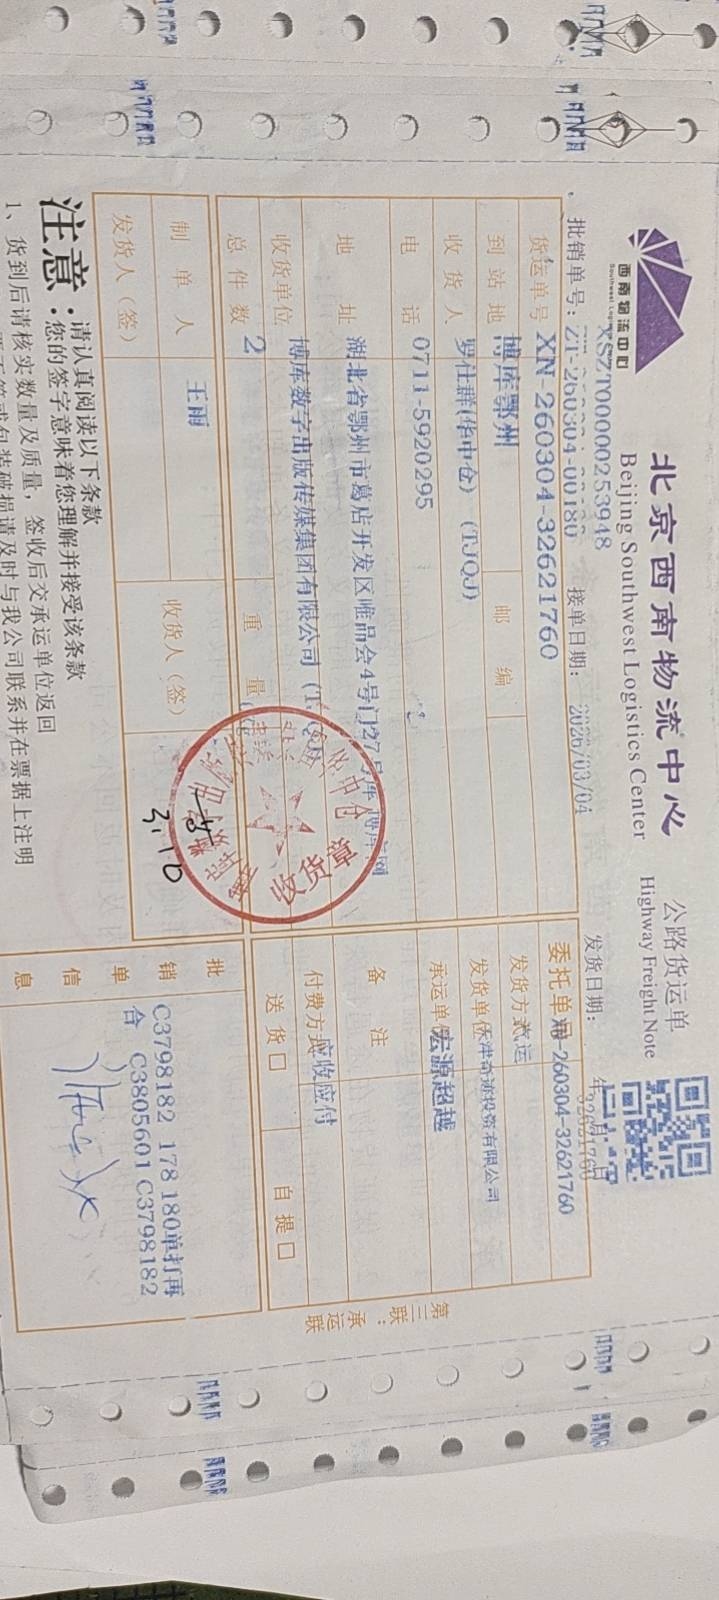 西南物流中心
Southwest Logistics Center
北京西南物流中心
Beijing Southwest Logistics Center
公路货运单
Highway Freight Note
XSZT00000253948
批销单号: ZT-260304-00180
接单日期: 2026/03/04
发货日期: 年
货运单号 XN-260304-32621760
委托单号 260304-32621760
到站地 博库鄂州
邮编
发货方式 汽运
收货人 罗仕群(华中仓) (TJQJ)
发货单位 天津奇迹投资有限公司
电话 0711-5920295
承运单位 宏源超越
地址 湖北省鄂州市葛店开发区唯品会4号门27号库 博库网
备注
收货单位 博库数字出版传媒集团有限公司
付费方式 应收应付
总件数 2
重量
送货□
自提□
收货章
制单人 王雨
发货人(签)
收货人(签)
3.10
批销单信息
C3798182 178 180单打再
合 C3805601 C3798182
第三联:承运联
注意:
请认真阅读以下条款
您的签字意味着您理解并接受该条款
1、货到后请核实数量及质量, 签收后交承运单位返回